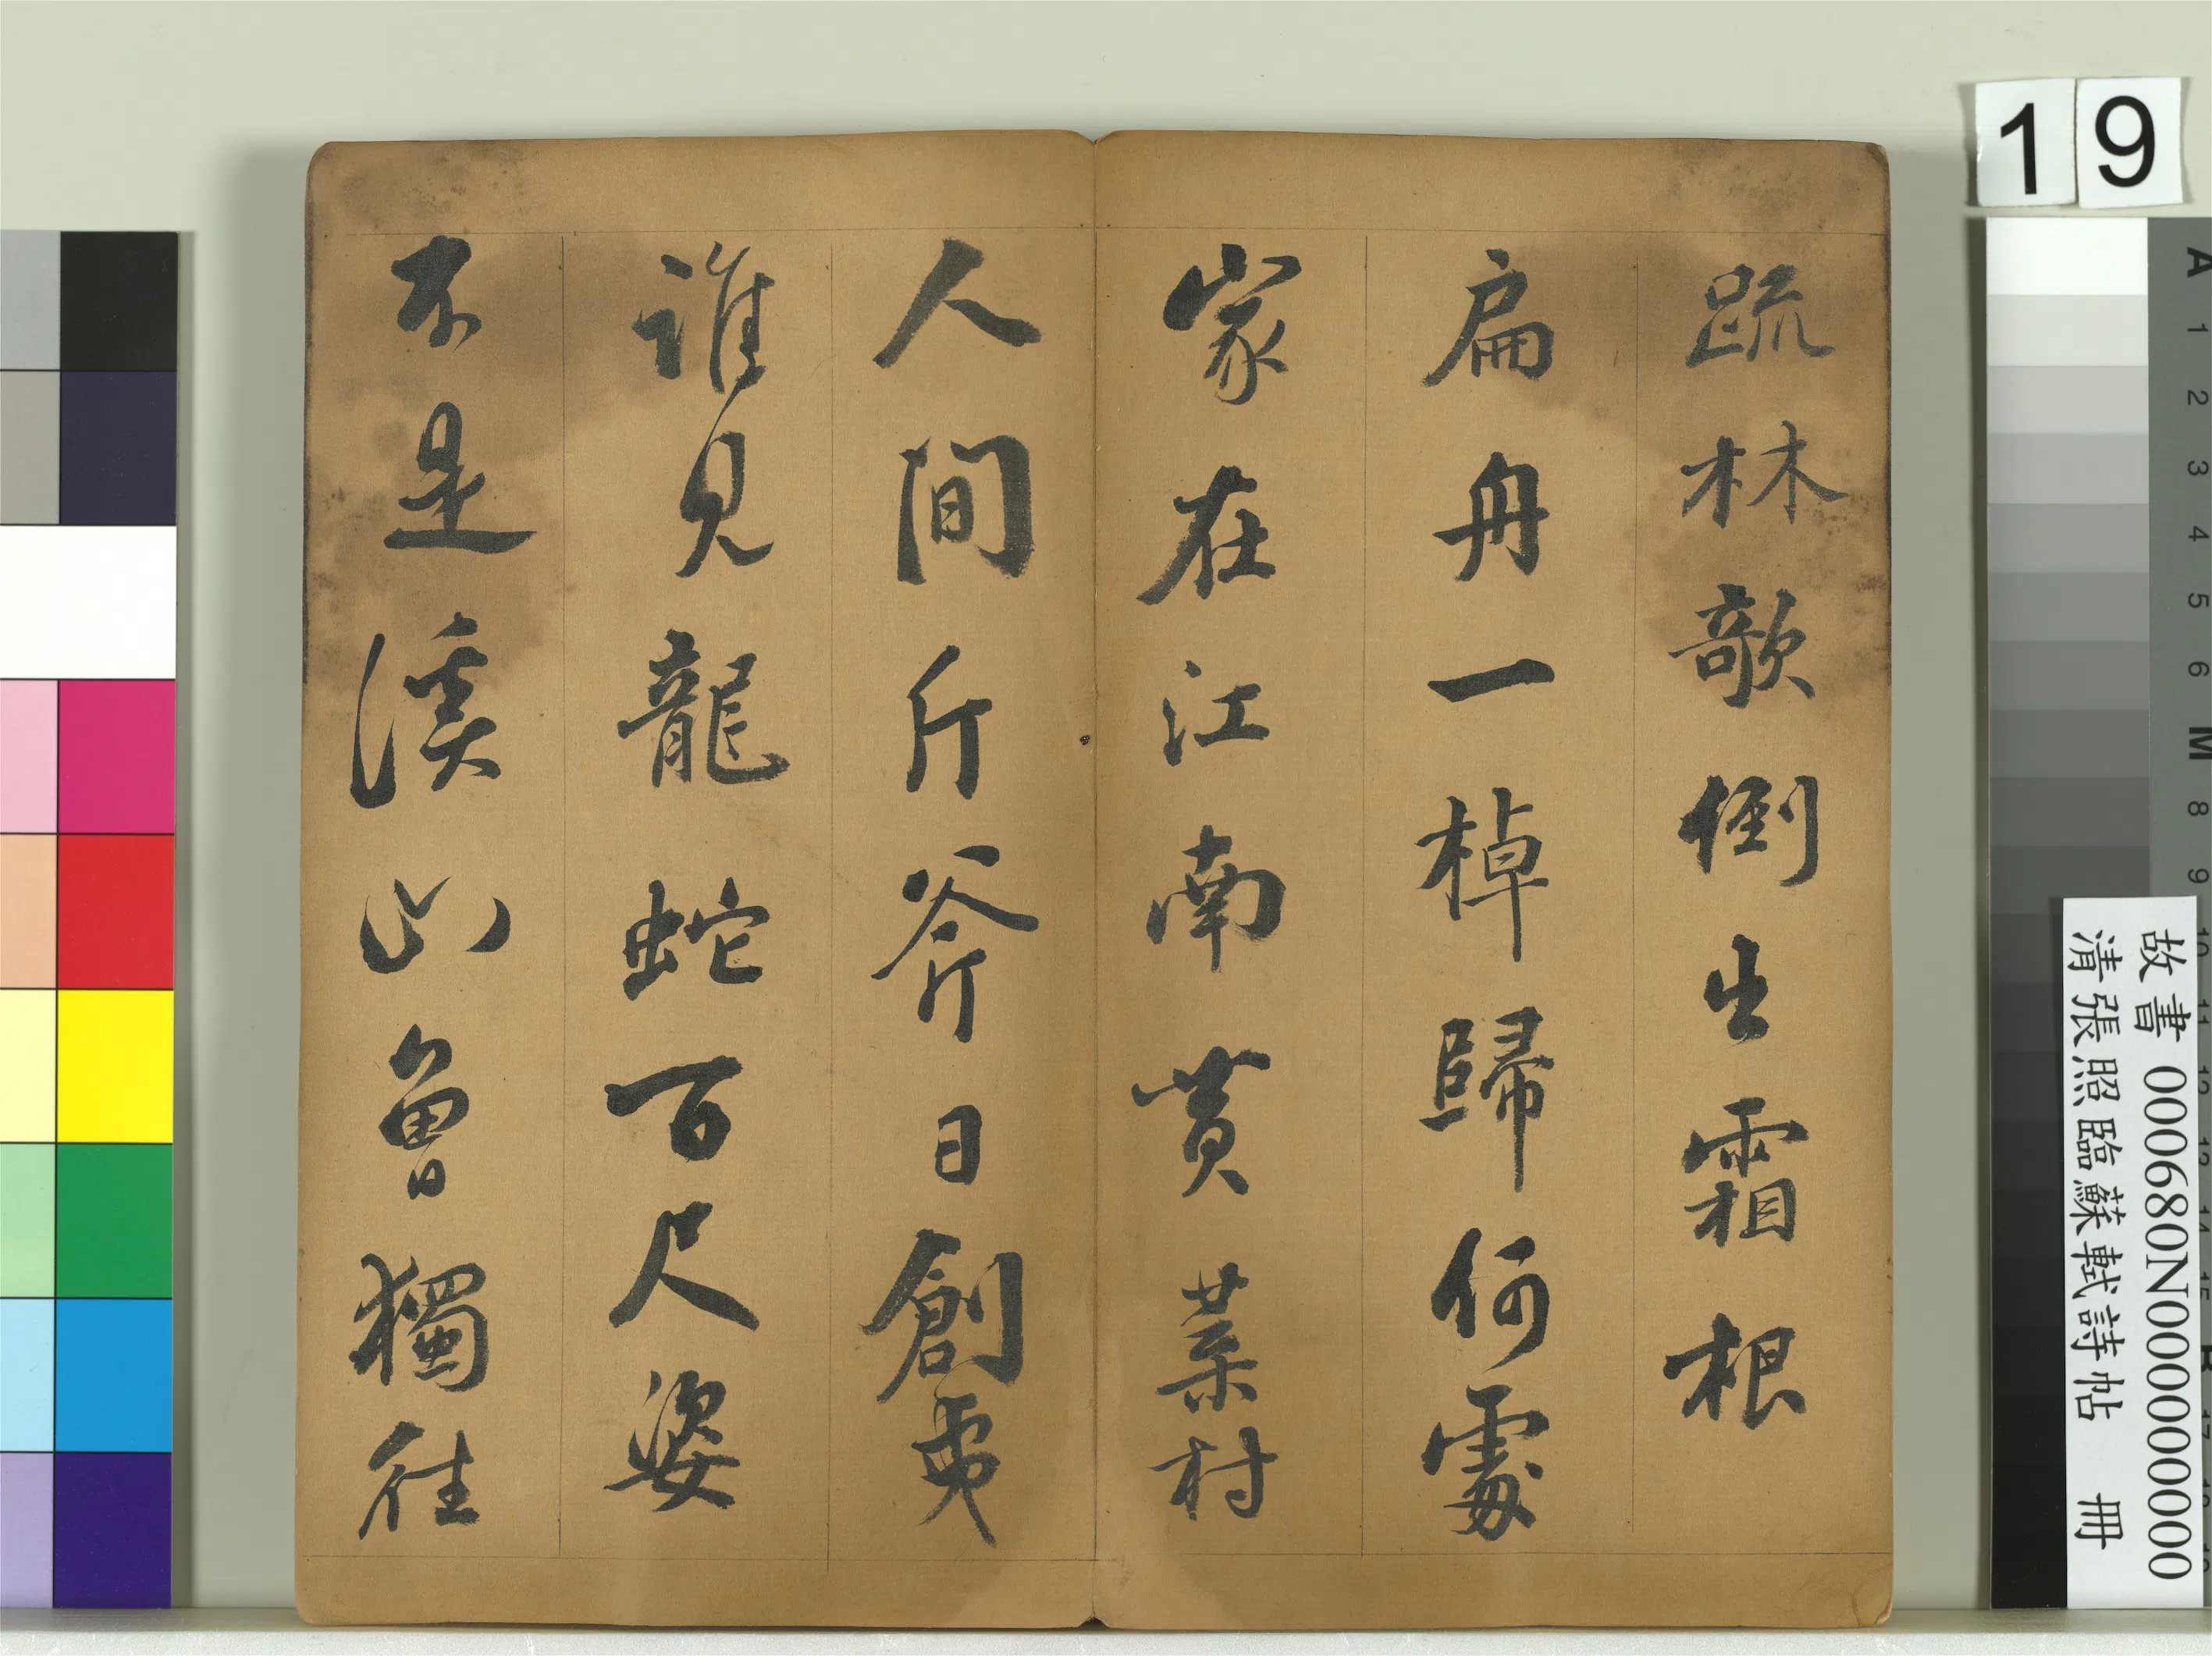 疏林欹倒出霜根
扁舟一棹歸何處
家在江南黃葉村
人間斤斧日創夷
誰見龍蛇百尺姿
不是溪山曾獨往
19
故書 000680N000000000
清張照臨蘇軾詩帖 冊
A 1 2 3 4 5 6 M 8 9